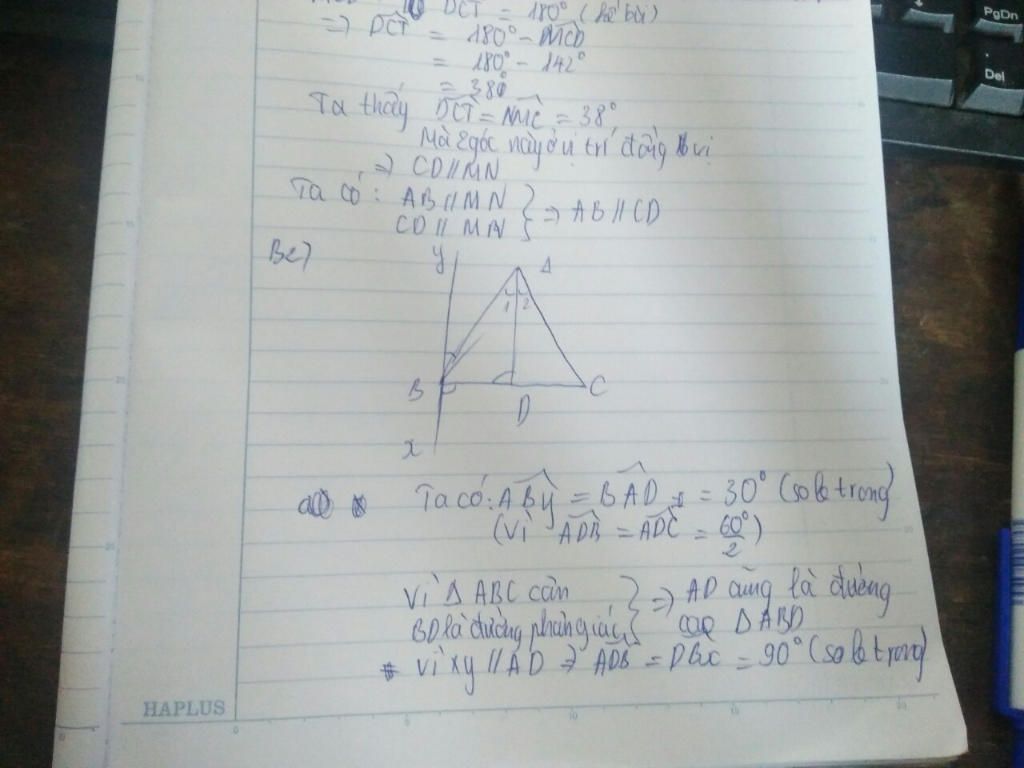 DCT = 180° (kề bù)
=> DCT = 180° - MCD
= 180° - 142°
= 38°
Ta thấy DCT = NMC = 38°
Mà 2 góc này ở vị trí đồng vị
=> CD // MN
Ta có: AB // MN
CD // MN
} => AB // CD
B2)
y A
1 2
B D C
x
Ta có: ABy = BAD = 30° (so le trong)
(vì ADB = ADC = 60°/2)
Vì Δ ABC cân
BD là đường phân giác
} => AD cũng là đường
cao Δ ABD
* Vì xy // AD => ADB = DBx = 90° (so le trong)
HAPLUS
0 5 10 15 20
PgDn
Del